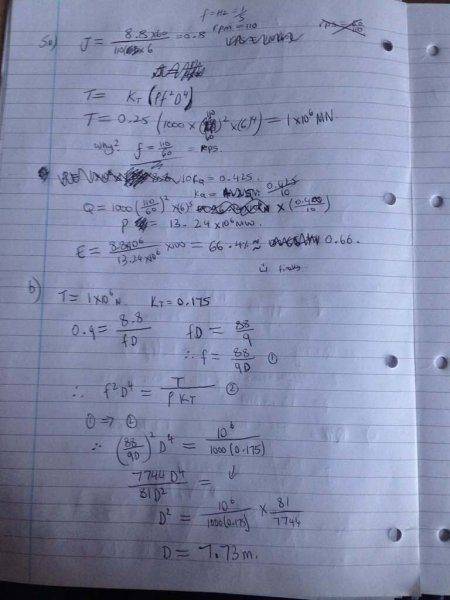 f = Hz = 1/s
rpm = 110
rps = 60/110
5a) J = 8.8x60 / 110x6 = 0.8
T = K_T (ρf²D⁴)
T = 0.25 (1000 x (110/60)² x (6)⁴) = 1x10⁶ MN
why? f = 110/60 = rps.
10K_Q = 0.425.
K_Q = 0.425/10
Q = 1000 (110/60)² x (6)⁵ x (0.425/10)
P = 13.24 x10⁶ MW.
E = / 13.24 x10⁶ x100 = 66.4% ≈ 0.66.
b) T = 1x10⁶ N. K_T = 0.175
0.9 = 8.8 / fD fD = 88/9
∴ f = 88/9D ①
∴ f²D⁴ = T / ρK_T ②
① ⇒ ②
∴ (88/9D)² D⁴ = 10⁶ / 1000(0.175)
7744 D⁴ / 81D² = ↓
D² = 10⁶ / 1000(0.175) x 81/7744
D = 7.73m.